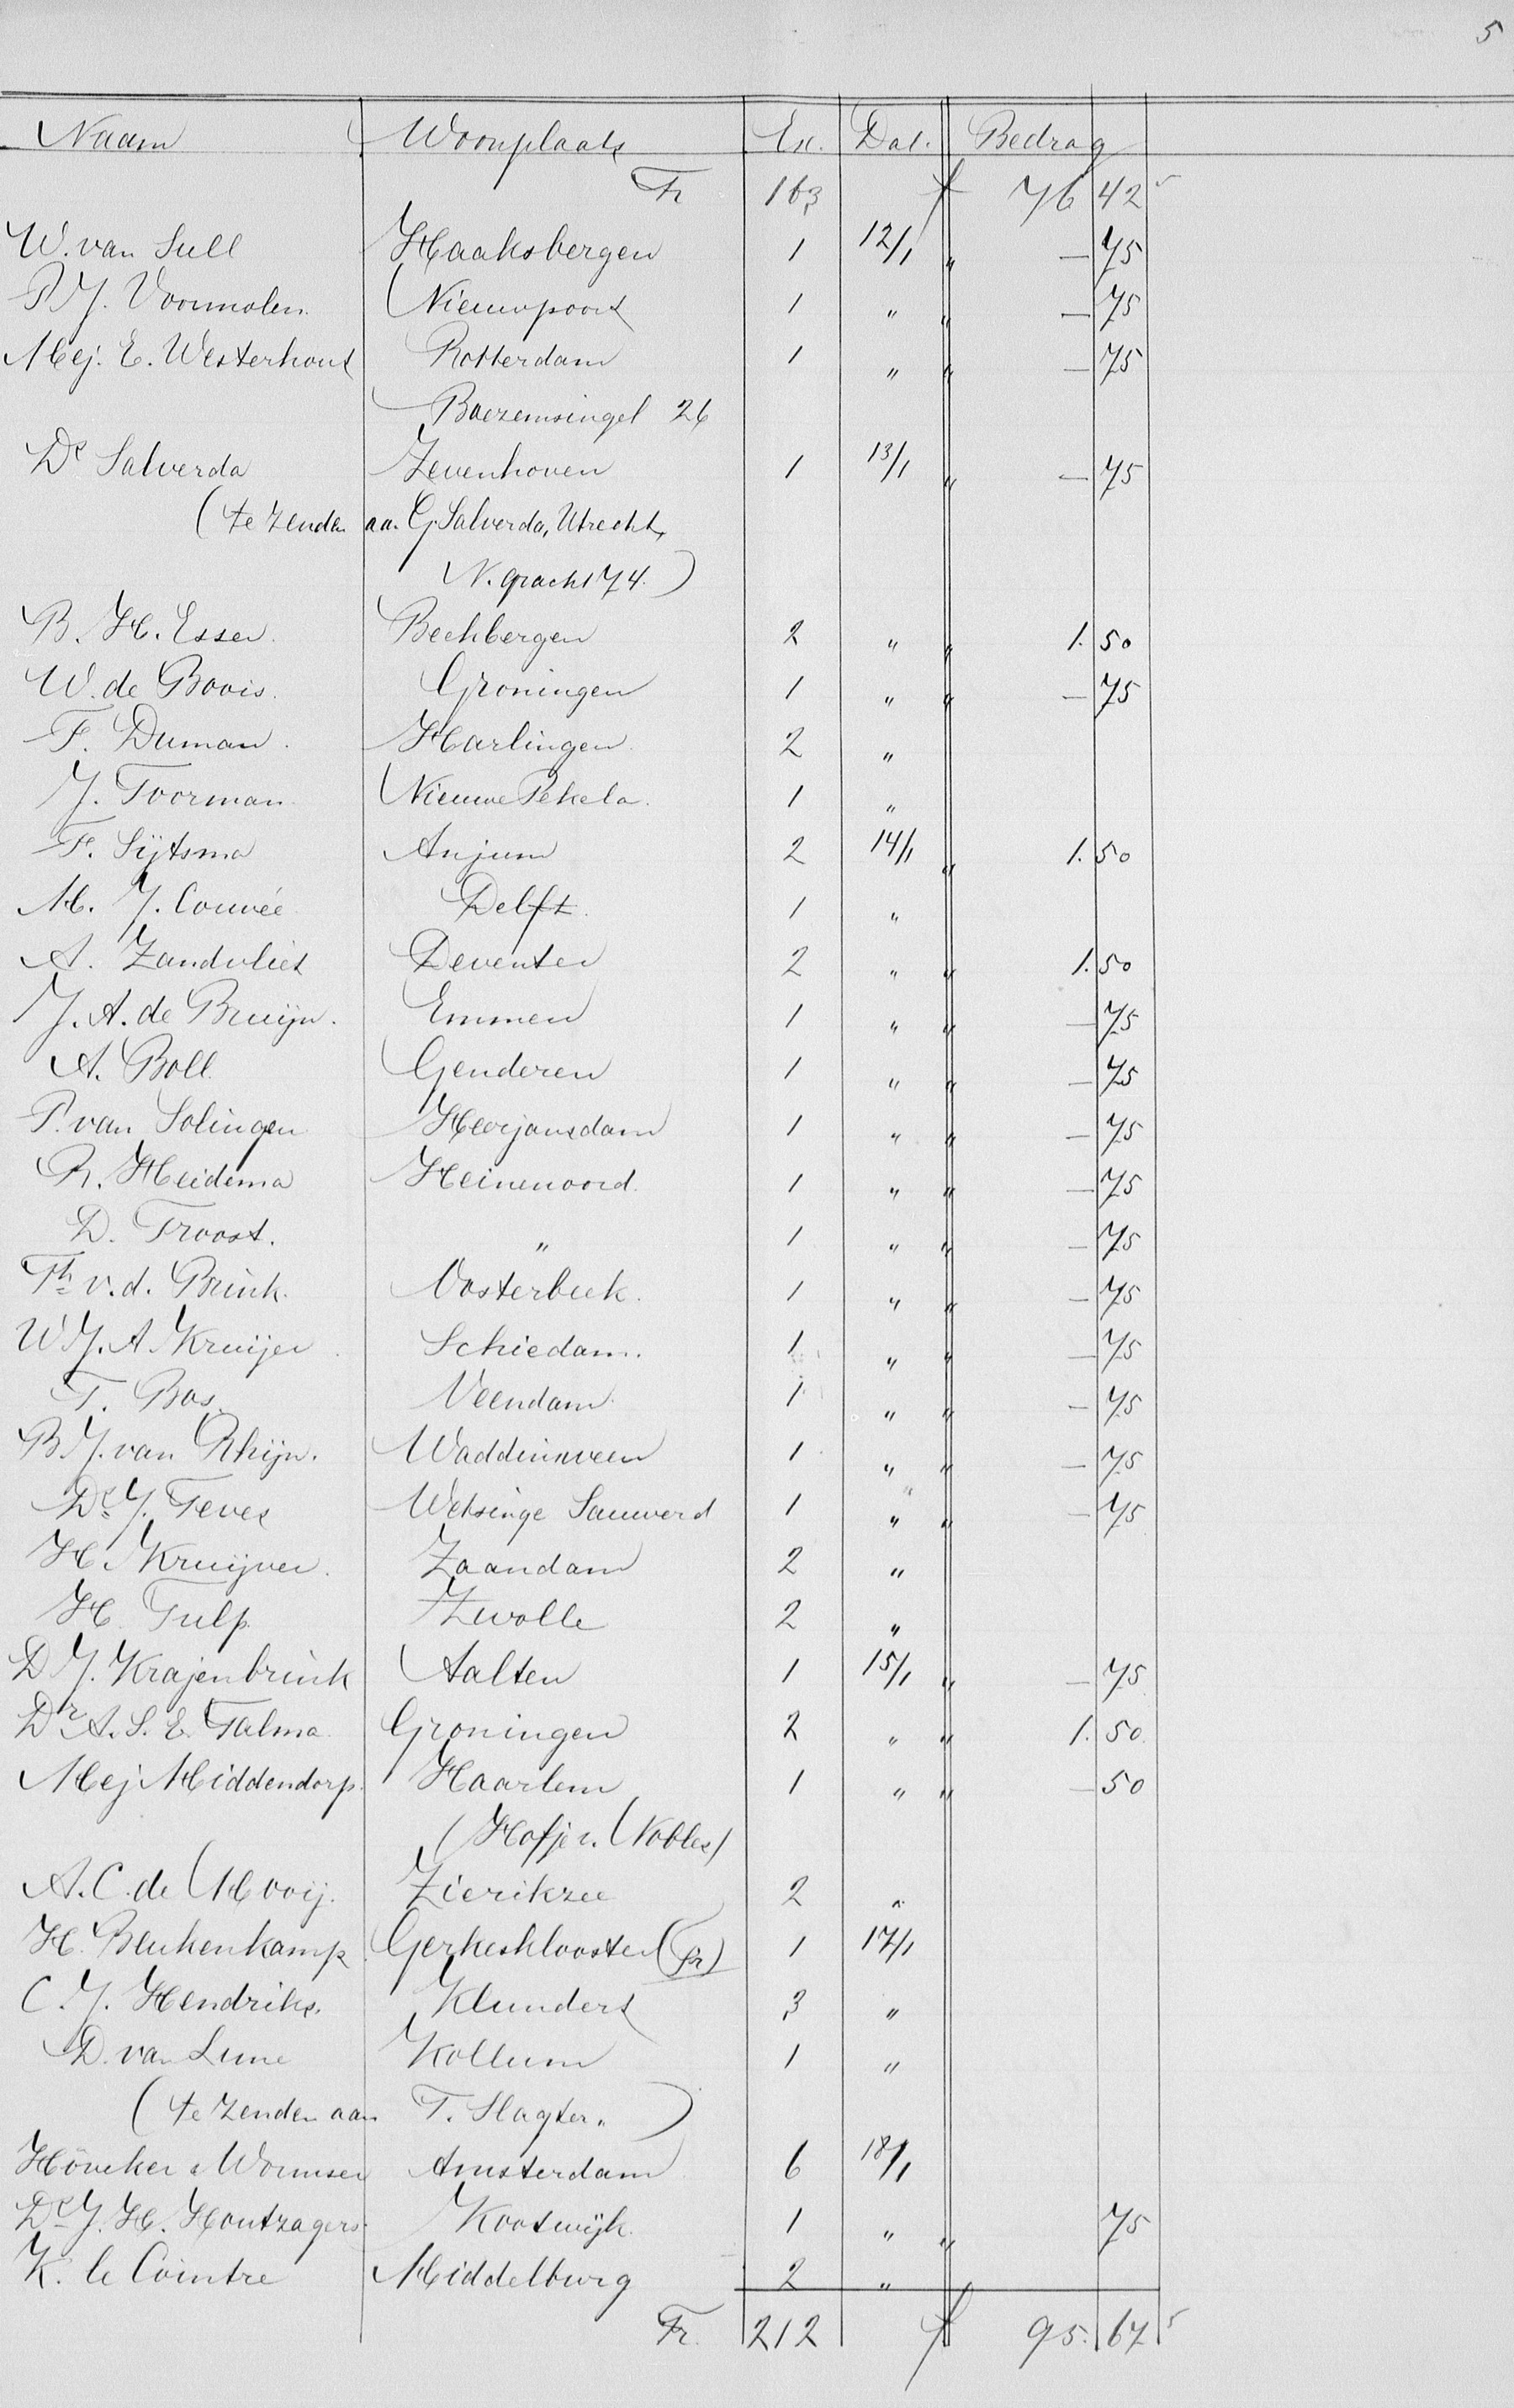 5
Naam Woonplaats Ex. Dat. Bedrag
Fr 163 f 76 42⁵
W. van Sull Haaksbergen 1 12/1 " — 75
P.J. Voormolen Nieuwpoort 1 " " — 75
Mej. E. Westerhout Rotterdam 1 " " — 75
Boezemsingel 26
Ds Salverda Zevenhoven 1 13/1 " — 75
(te zenden aan G Salverda, Utrecht,
N. gracht 74.)
B. H. Esser. Beekbergen 2 " " 1. 50
W. de Bovis. Groningen 1 " " — 75
F. Duman. Harlingen 2 "
J. Toorman Nieuwe Pekela. 1 "
F. Sijtsma Anjum 2 14/1 " 1. 50
M. J. Couvée Delft. 1 "
A. Zandvliet Deventer 2 " " 1. 50
J. A. de Bruijn. Emmen 1 " " — 75
A. Boll Genderen 1 " " — 75
P. van Solingen Heerjansdam 1 " " — 75
R. Heidema Heinenoord 1 " " — 75
D. Troost. " 1 " " — 75
Th v.d. Brink. Oosterbeek. 1 " " — 75
W.J.A. Kruijer. Schiedam. 1 " " — 75
T. Bos. Veendam 1 " " — 75
B.J. van Rhijn. Waddinxveen 1 " " — 75
Ds J. Teves Wetsinge Sauwerd 1 " " — 75
H. Kruijver. Zaandam 2 "
H. Tulp Zwolle 2 "
D J. Krajenbrink Aalten 1 15/1 " — 75
Dr A. S. E. Talma Groningen 2 " " 1. 50
Mej Middendorp. Haarlem 1 " " — 50
(Hofje v. Nobles)
A. C. de Mooij. Zierikzee 2 "
H. Beukenkamp Gerkesklooster (Fr) 1 17/1
C. J. Hendriks. Klundert 3 "
D. van Lune Kollum 1 "
(te zenden aan T. Slagter.)
Höveker & Wormser Amsterdam 6 18/1
Ds J. H. Houtzagers Kootwijk 1 " " 75
K. le Cointre Middelburg 2 "
Fr. 212 f 95. 67⁵